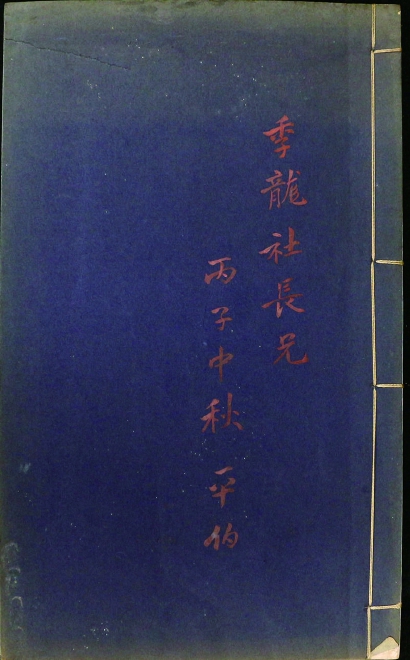 季龍社長兄
丙子中秋 平伯